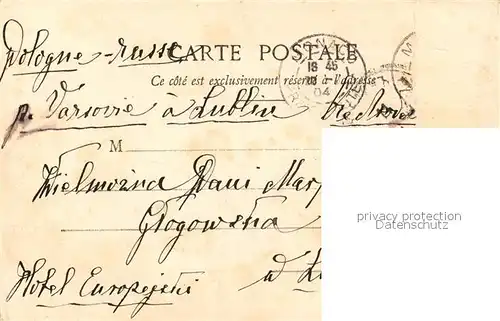 Pologne-russe CARTE POSTALE
Ce côté est exclusivement réservé à l'adresse
p. Varsovie à Lublin
M
Wielmożna Pani Mar
Głogowska
Hotel Europejski w
18 45
04
privacy protection
Datenschutz